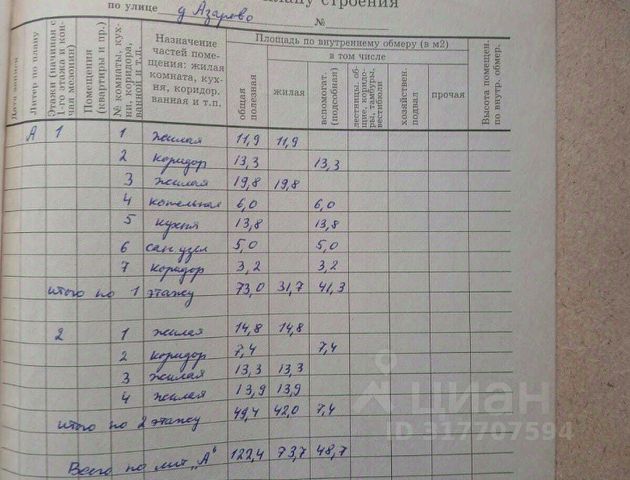 плану строения
по улице д Азарово №
Дата записи
Литер по плану
Этажи (начиная с 1-го этажа и кончая мезонин)
Помещения (квартиры и пр.)
№ комнаты, кухни, коридора, ванной и т.п.
Назначение частей помещения: жилая комната, кухня, коридор, ванная и т.п.
Площадь по внутреннему обмеру (в м2)
в том числе
общая полезная
жилая
вспомогат. (подсобная)
лестницы, общие, коридоры, тамбуры, вестибюли
хозяйствен. подвал
прочая
Высота помещен. по внутр. обмер.
А 1 1 жилая 11,9 11,9
2 коридор 13,3 13,3
3 жилая 19,8 19,8
4 котельная 6,0 6,0
5 кухня 13,8 13,8
6 сан узел 5,0 5,0
7 коридор 3,2 3,2
итого по 1 этажу 73,0 31,7 41,3
2 1 жилая 14,8 14,8
2 коридор 7,4 7,4
3 жилая 13,3 13,3
4 жилая 13,9 13,9
итого по 2 этажу 49,4 42,0 7,4
Всего по лит „А" 122,4 73,7 48,7
циан
ID 317707594